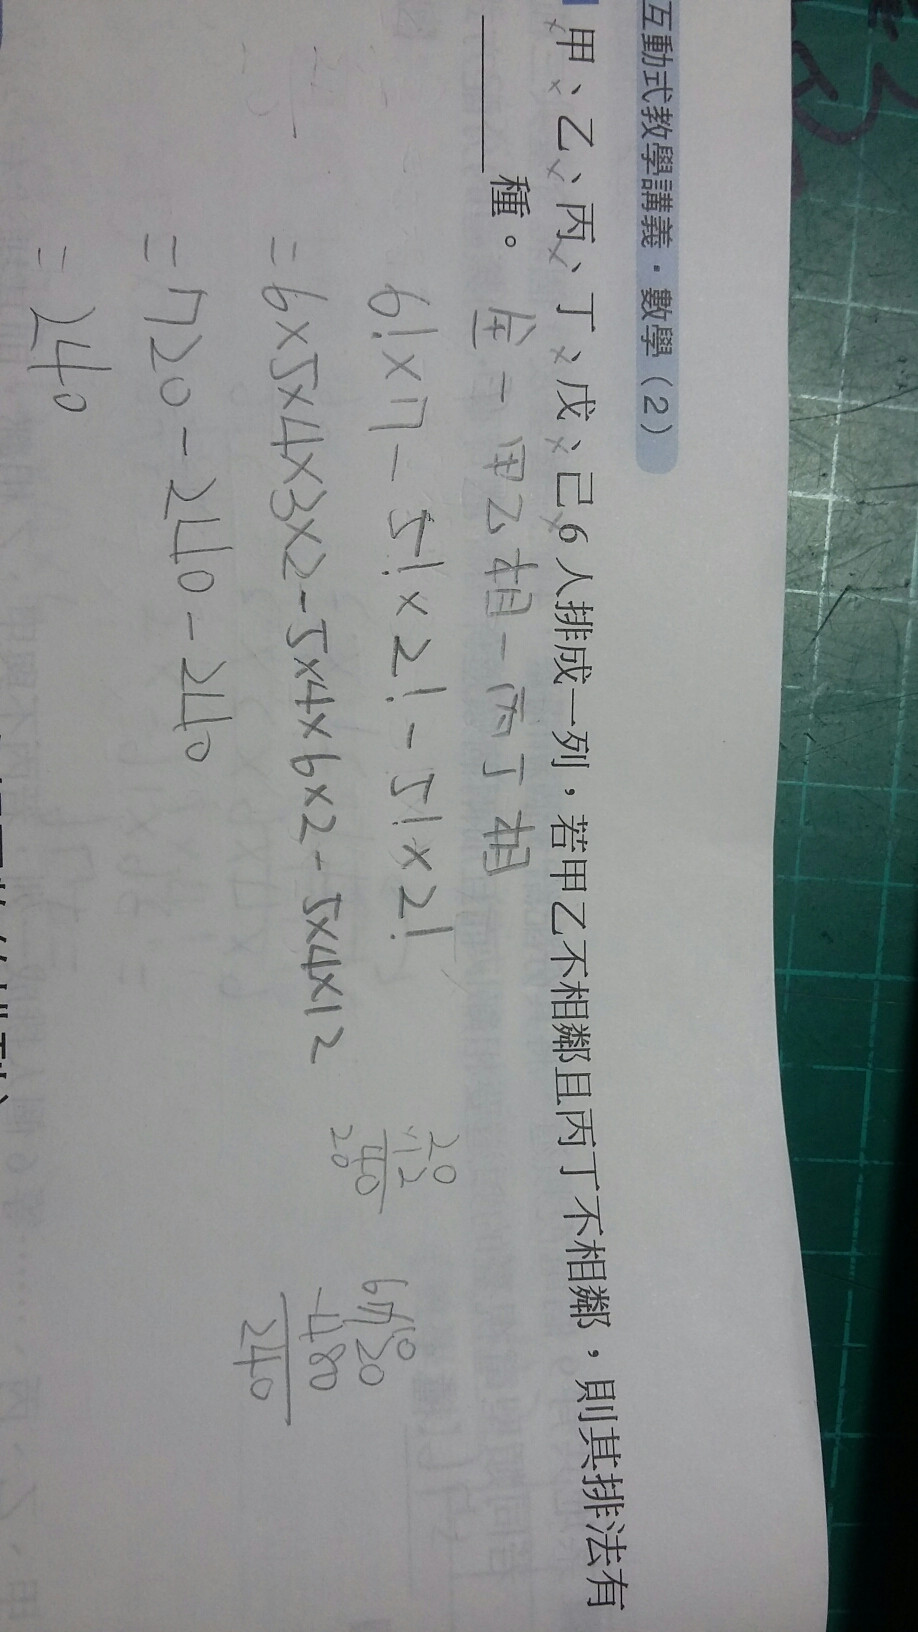 互動式教學講義．數學（2）
甲、乙、丙、丁、戊、己6人排成一列，若甲乙不相鄰且丙丁不相鄰，則其排法有
＿＿＿種。
全－甲乙相－丙丁相
6!×7－5!×2!－5!×2!
=6×5×4×3×2－5×4×6×2－5×4×12
=720－240－240
=240
20
12
40
20
720
-480
240